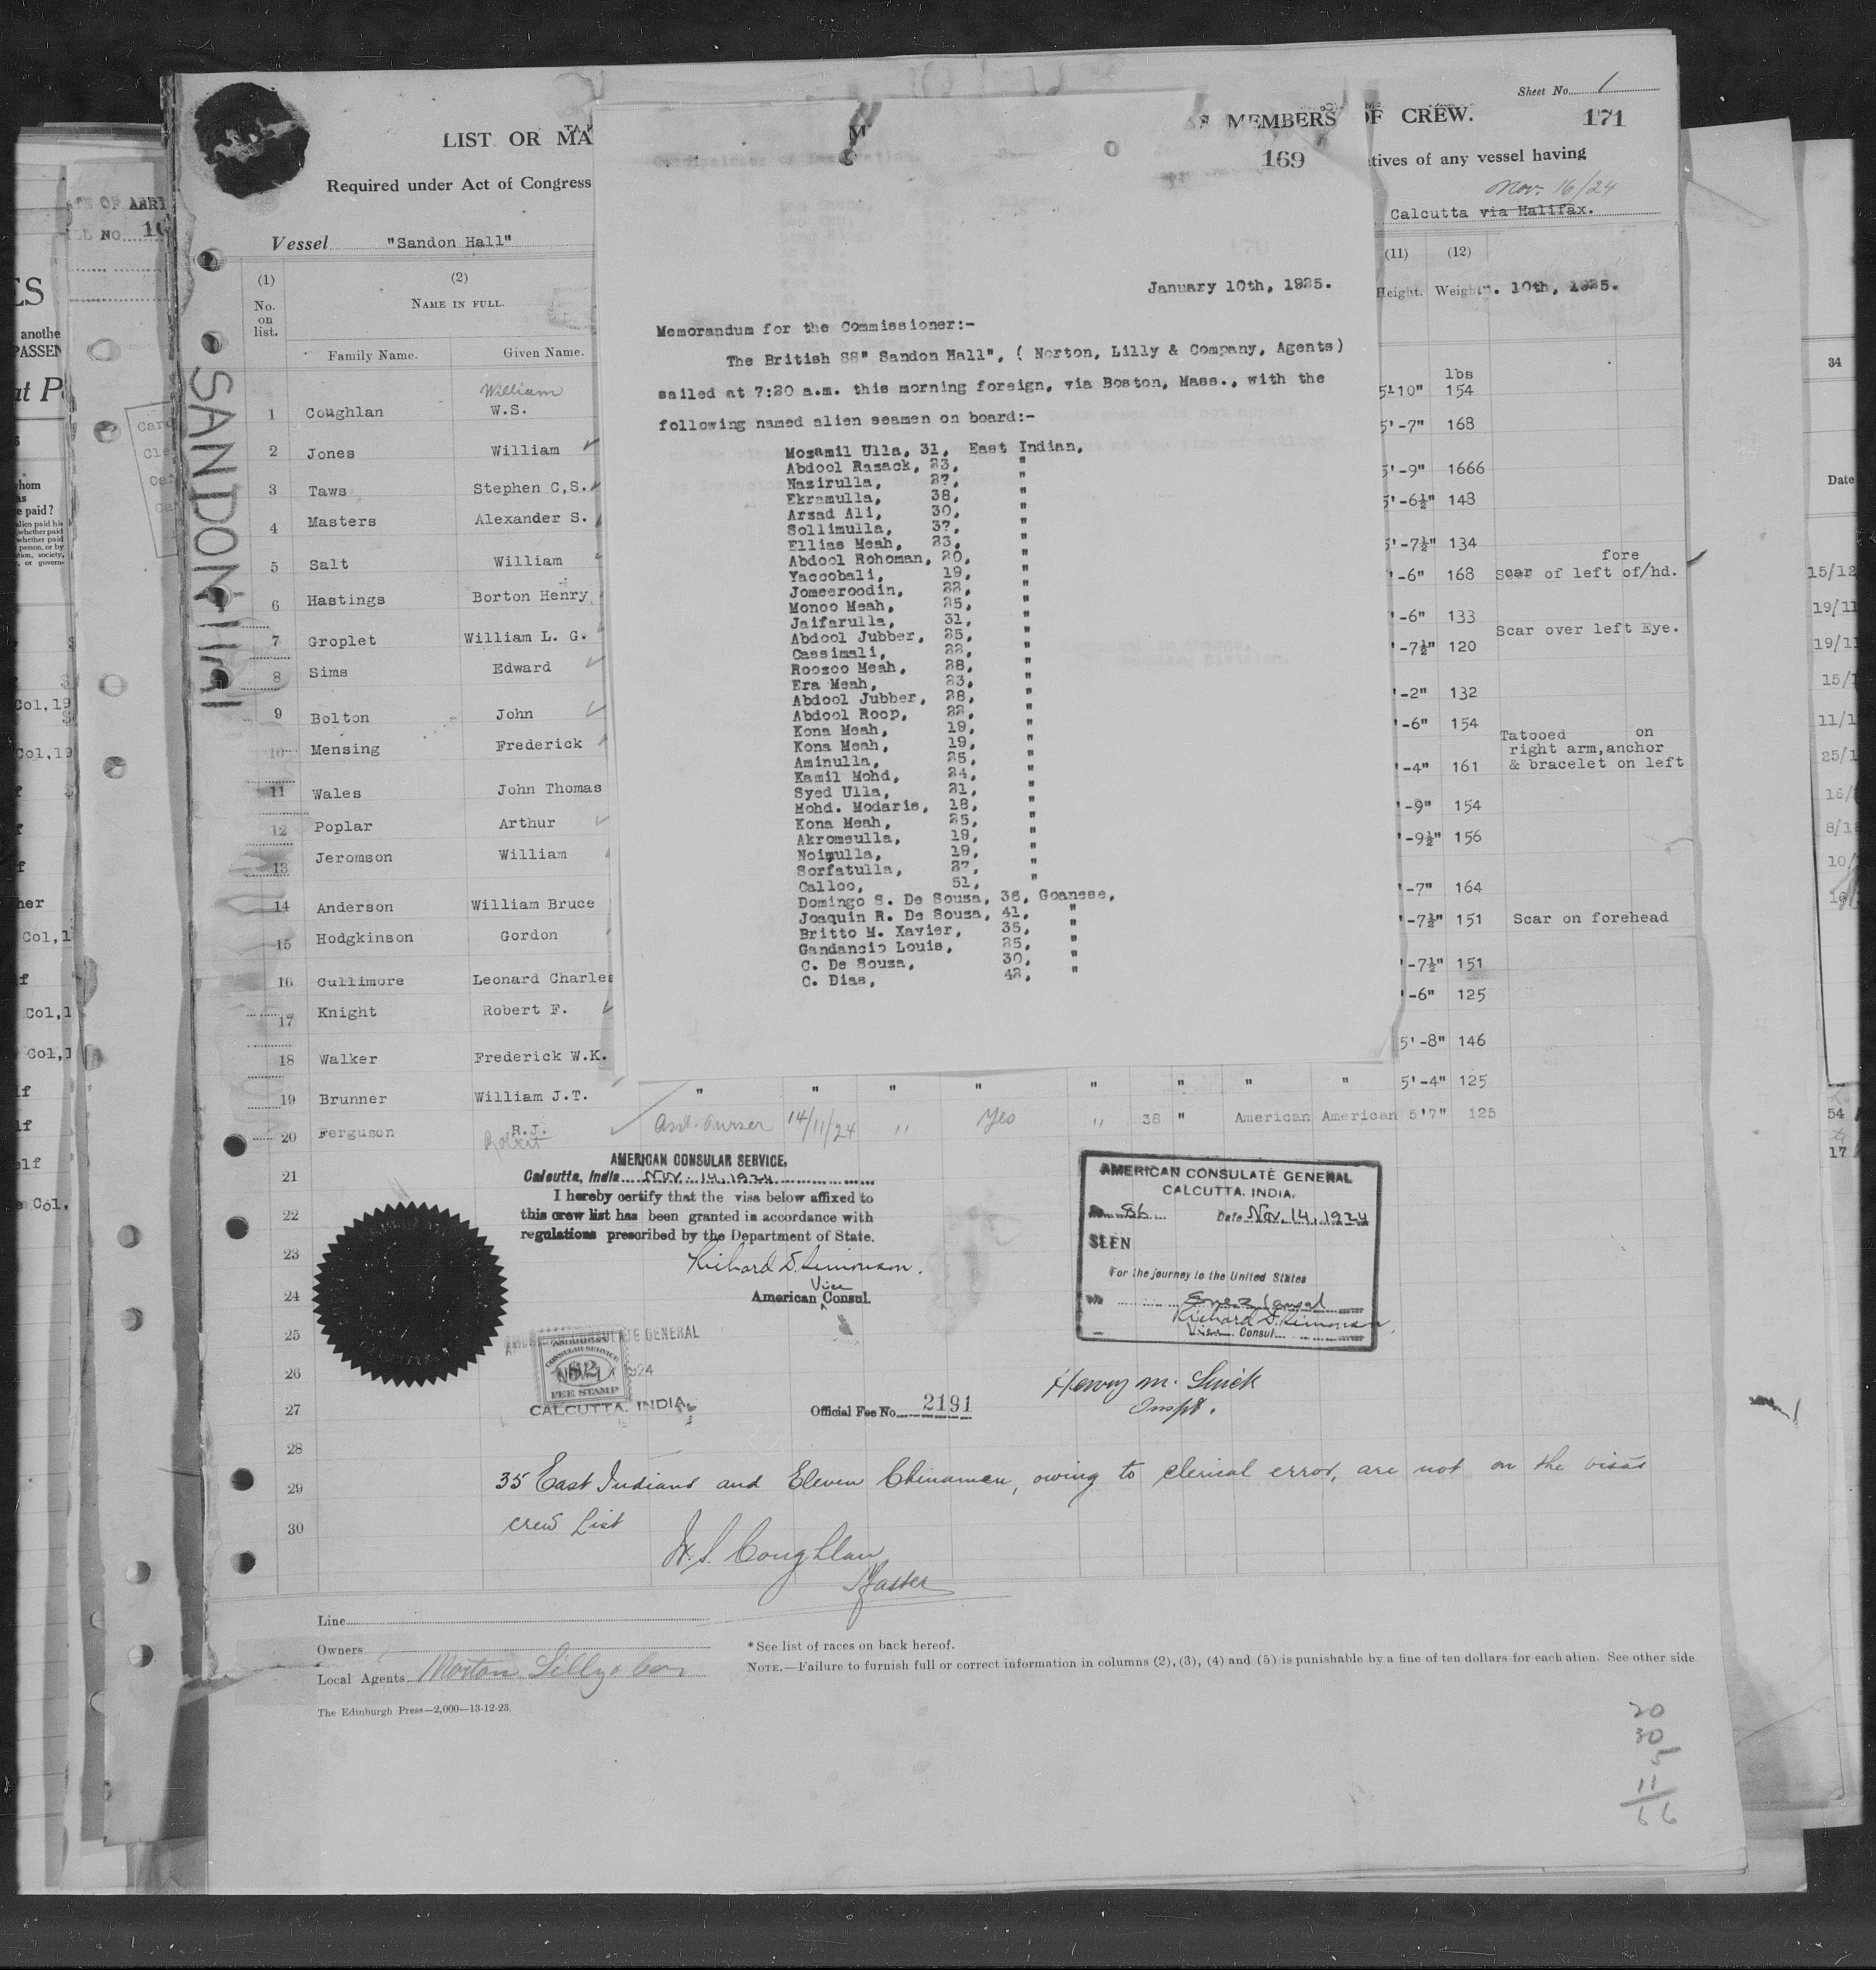 Sheet No. 1
LIST OR MA
S MEMBERS OF CREW.
171
169
Required under Act of Congress
tives of any vessel having
Nov. 16/24
Calcutta via Halifax.
Vessel "Sandon Hall"
SANDON HALL
(1) (2) (11) (12)
No. on list.
NAME IN FULL.
Height. Weigh
10th, 1925.
Family Name. Given Name.
January 10th, 1925.
Memorandum for the Commissioner:-
The British SS" Sandon Hall", ( Norton, Lilly & Company, Agents)
sailed at 7:20 a.m. this morning foreign, via Boston, Mass., with the
following named alien seamen on board:-
Mozamil Ulla, 31, East Indian,
Abdool Razack, 23, "
Nazirulla, 27, "
Ekramulla, 38, "
Arzad Ali, 30, "
Sollimulla, 37, "
Ellias Meah, 23, "
Abdool Rohoman, 20, "
Yaccobali, 19, "
Jomeeroodin, 22, "
Monoo Meah, 25, "
Jaifarulla, 31, "
Abdool Jubber, 25, "
Cassimali, 22, "
Roozoo Meah, 28, "
Era Meah, 23, "
Abdool Jubber, 28, "
Abdool Roop, 22, "
Kona Meah, 19, "
Kona Meah, 19, "
Aminulla, 25, "
Kamil Mohd, 24, "
Syed Ulla, 21, "
Mohd. Modaris, 18, "
Kona Meah, 25, "
Akromeulla, 19, "
Noimulla, 19, "
Sorfatulla, 27, "
Calloo, 51, "
Domingo S. De Sousa, 36, Goanese,
Joaquin R. De Souza, 41, "
Britto M. Xavier, 35, "
Gandancio Louis, 25, "
C. De Souza, 30, "
C. Dias, 42, "
William
lbs
1 Coughlan W.S. 5'10" 154
2 Jones William 5'-7" 168
3 Taws Stephen C,S. 5'-9" 1666
4 Masters Alexander S. 5'-6½" 148
5 Salt William 5'-7½" 134
6 Hastings Borton Henry '-6" 168 Scar of left of/hd.
fore
7 Groplet William L. G. '-6" 133
8 Sims Edward '-7½" 120 Scar over left Eye.
9 Bolton John '-2" 132
10 Mensing Frederick '-6" 154
11 Wales John Thomas '-4" 161 Tatooed on
right arm,anchor
& bracelet on left
12 Poplar Arthur '-9" 154
13 Jeromson William '-9½" 156
14 Anderson William Bruce '-7" 164
15 Hodgkinson Gordon '-7½" 151 Scar on forehead
16 Cullimore Leonard Charles '-7½" 151
17 Knight Robert F. '-6" 125
18 Walker Frederick W.K. 5'-8" 146
19 Brunner William J.T. " " " " " " " " 5'-4" 125
20 Ferguson R.J. Asst. Purser 14/11/24 " Yes " 38 " American American 5'7" 125
Robert
21
22
23
24
25
26
27
28
29
30
AMERICAN CONSULAR SERVICE,
Calcutta, India Nov. 14, 1924
I hereby certify that the visa below affixed to
this crew list has been granted in accordance with
regulations prescribed by the Department of State.
Vice
American Consul.
AMERICAN CONSULATE GENERAL
CALCUTTA. INDIA.
No. 86 Date Nov. 14, 1924
SEEN
For the journey to the United States
Vice Consul
CONSULATE GENERAL
AMERICAN
CONSULAR SERVICE
$2
FEE STAMP
1924
CALCUTTA. INDIA.
Official Fee No. 2191
Inspt.
35 East Indians and Eleven Chinamen, owing to clerical error, are not on the visas
crew list
W. S. Coughlan
Master
Line
Owners
Local Agents Norton Lilly & Co.
The Edinburgh Press—2,000—13-12-23.
* See list of races on back hereof.
NOTE.—Failure to furnish full or correct information in columns (2), (3), (4) and (5) is punishable by a fine of ten dollars for each alien. See other side
20
30
5
11
66